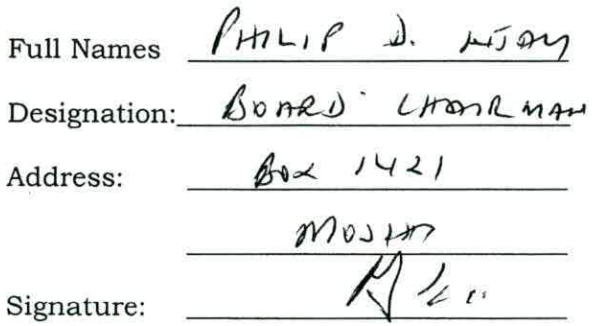 Full Names PHILIP D. NJAU
Designation: BOARD CHAIRMAN
Address: BOX 1421
MOSHI
Signature: